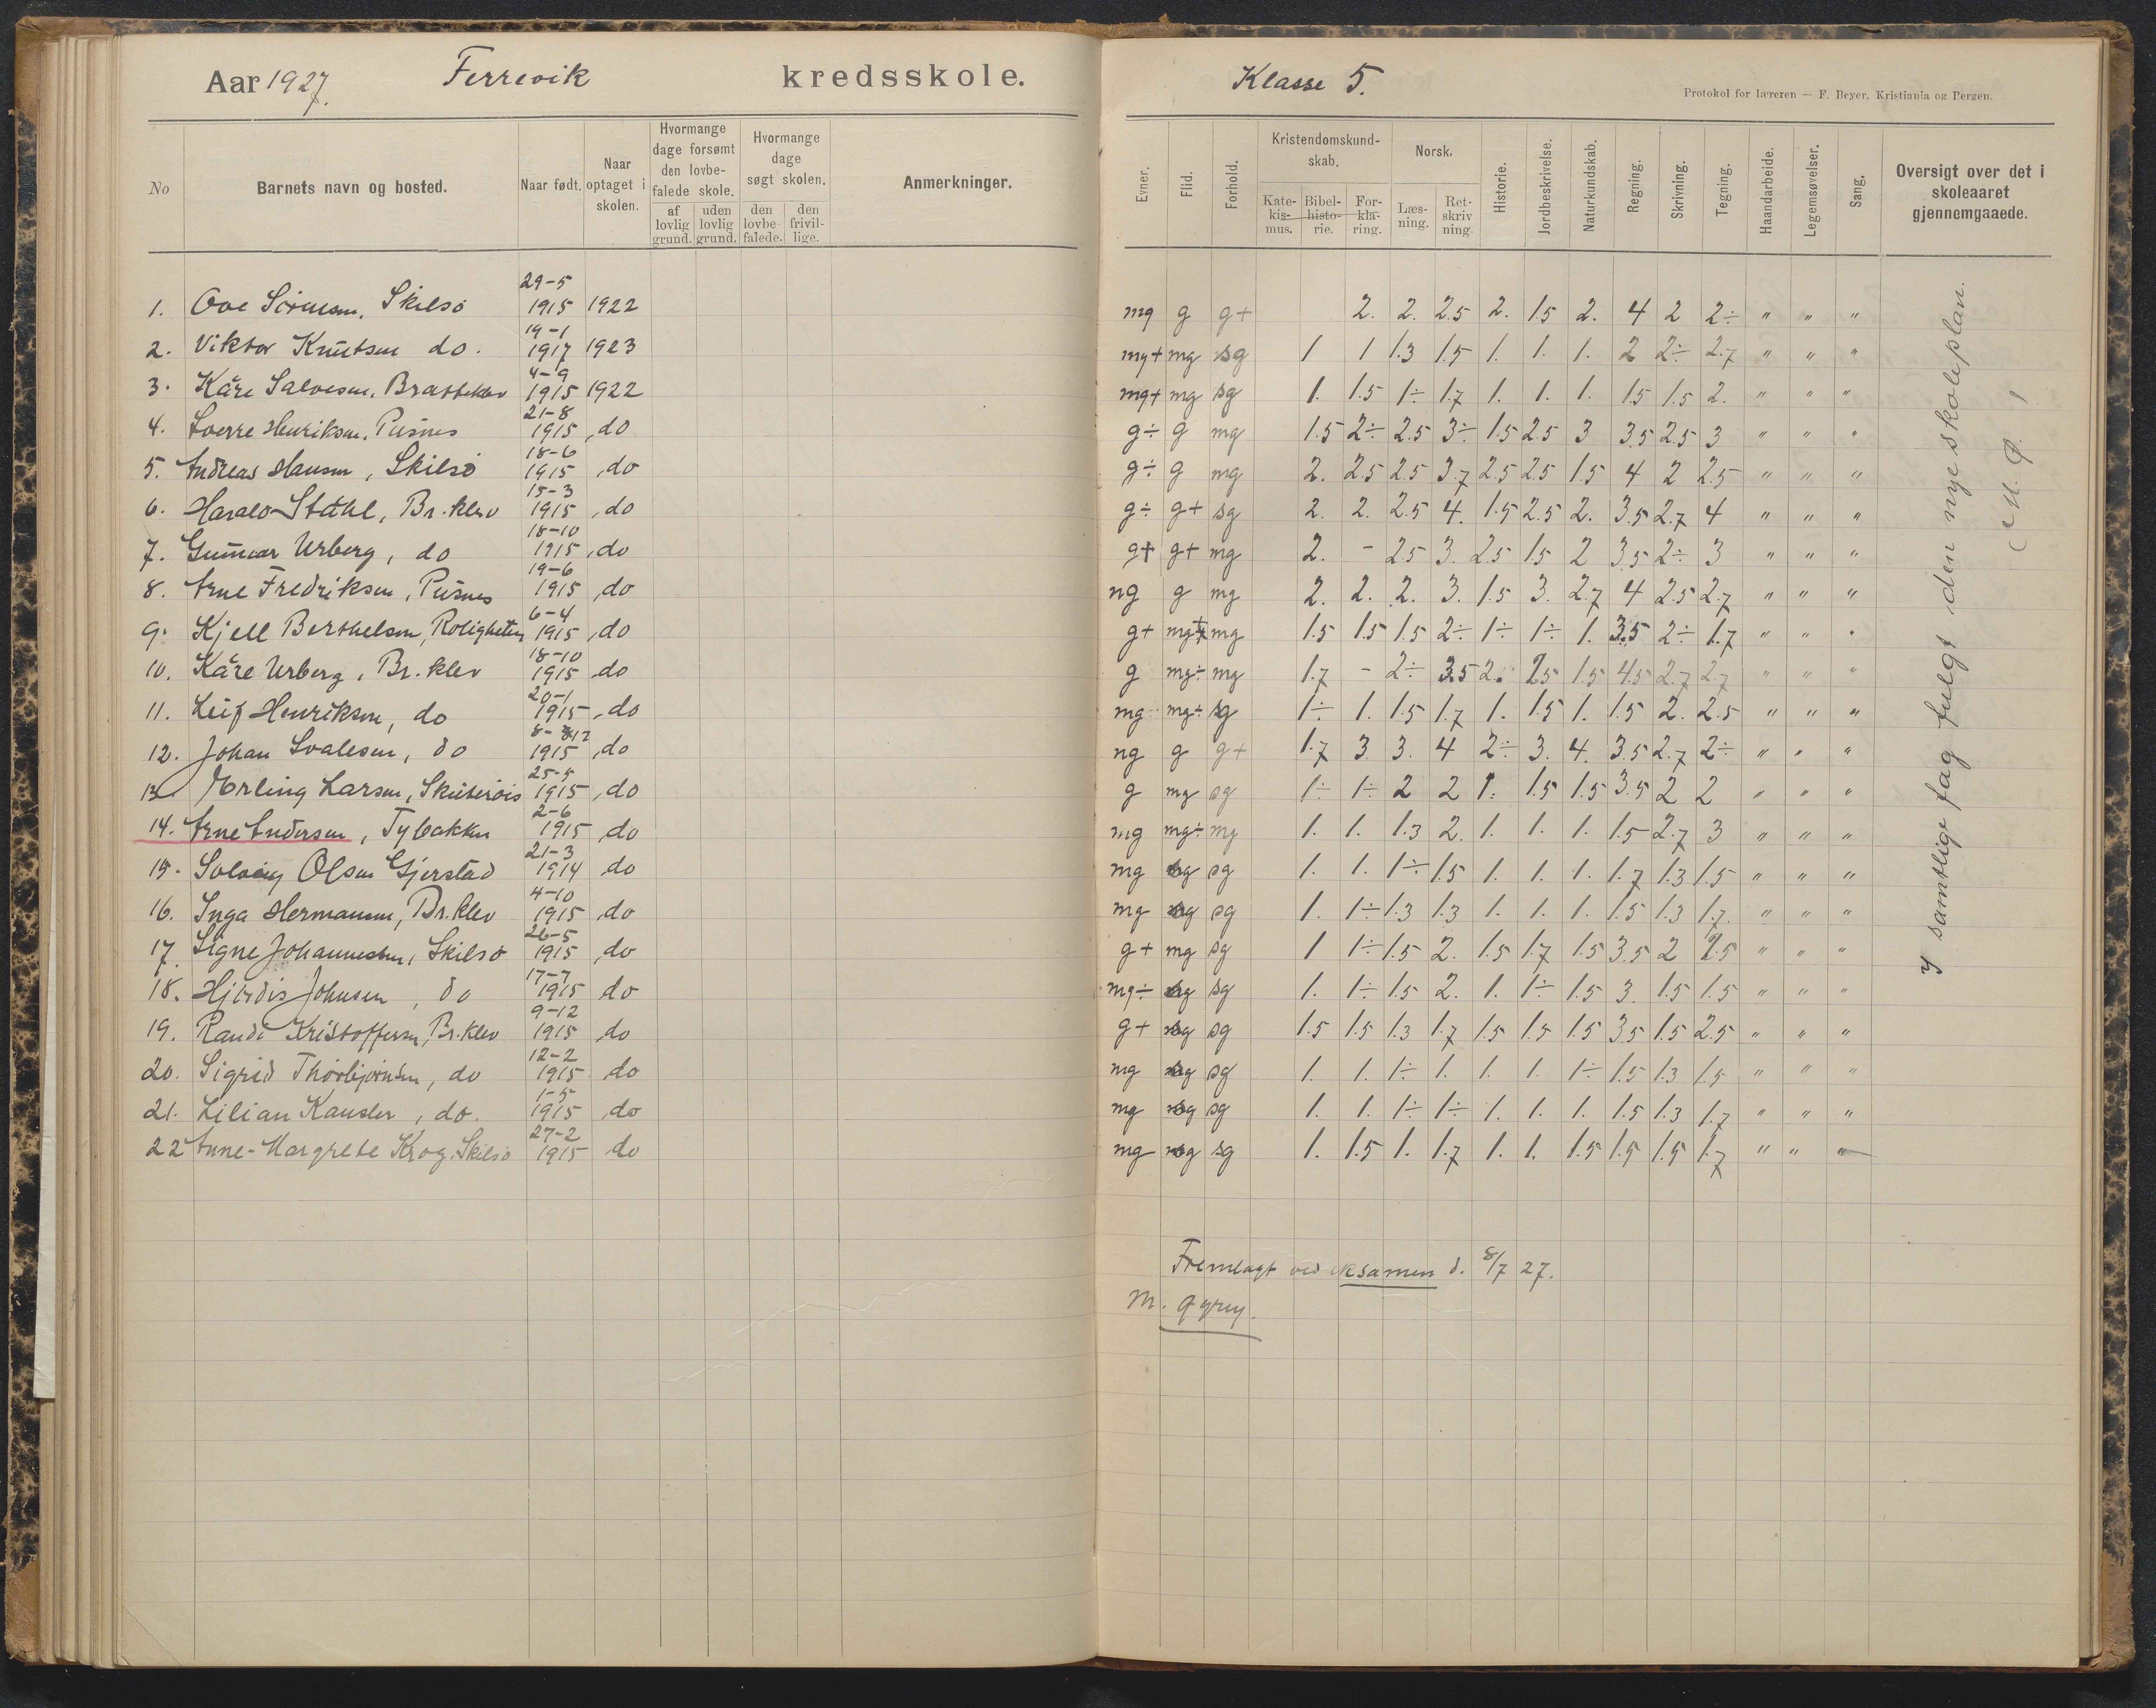 Aar 1927. Ferrevik kredsskole.
No Barnets navn og bosted. Naar født. Naar optaget i skolen. Hvormange dage forsømt den lovbefalede skole. af lovlig grund. uden lovlig grund. Hvormange dage søgt skolen. den lovbefalede. den frivillige. Anmerkninger.
1. Ove Sörensen, Skilsö 29-5 1915 1922
2. Viktor Knutsen do. 19-1 1917 1923
3. Kåre Salvesen, Bratteklev 4-9 1915 1922
4. Sverre Henriksen, Pusnes 21-8 1915 do
5. Andreas Hansen, Skilsö 18-6 1915 do
6. Harald Ståhl, Br.klev 15-3 1915 do
7. Gunnar Urberg, do 18-10 1915 do
8. Arne Fredriksen, Pusnes 19-6 1915 do
9. Kjell Berthelsen, Roligheten 6-4 1915 do
10. Kåre Urberg, Br.klev 18-10 1915 do
11. Leif Henriksen, do 20-1 1915 do
12. Johan Svalesen, do 8- 1915 do
13. Erling Larsen, 25-5 1915 do
14. Arne Andersen, Tybakken 2-6 1915 do
15. Solveig Olsen Gjerstad 21-3 1914 do
16. Inga Hermansen, Br.klev 4-10 1915 do
17. Signe Johannesen, Skilsö 26-5 1915 do
18. Hjördis Johnsen, do 17-7 1915 do
19. Randi Kristoffersen, Br.klev 9-12 1915 do
20. Sigrid Thorbjörnsen, do 12-2 1915 do
21. Lilian Kansler, do. 1-5 1915 do
22 Anne-Margrete Krog, Skilsö 27-2 1915 do
Klasse 5.
Protokol for læreren — F. Beyer, Kristiania og Bergen.
Evner. Flid. Forhold. Kristendomskundskab. Katekismus. Bibelhistorie. Forklaring. Norsk. Læsning. Retskrivning. Historie. Jordbeskrivelse. Naturkundskab. Regning. Skrivning. Tegning. Haandarbeide. Legemsøvelser. Sang. Oversigt over det i skoleaaret gjennemgaaede.
mg g g+ 2. 2. 2.5 2. 1.5 2. 4 2 2÷ " " "
mg+ mg sg 1 1 1.3 1.5 1. 1. 1. 2 2÷ 2.7 " " "
mg+ mg sg 1. 1.5 1÷ 1.7 1. 1. 1. 1.5 1.5 2. " " "
g÷ g mg 1.5 2÷ 2.5 3÷ 1.5 2.5 3 3.5 2.5 3 " " "
g÷ g mg 2. 2.5 2.5 3.7 2.5 2.5 1.5 4 2 2.5 " " "
g÷ g+ sg 2. 2. 2.5 4. 1.5 2.5 2. 3.5 2.7 4 " " "
g+ g+ mg 2. - 2.5 3. 2.5 1.5 2 3.5 2÷ 3 " " "
ng g mg 2. 2. 2. 3. 1.5 3. 2.7 4 2.5 2.7 " " "
g+ mg mg 1.5 1.5 1.5 2÷ 1÷ 1÷ 1. 3.5 2÷ 1.7 " " "
g mg÷ mg 1.7 - 2÷ 3.5 2. 2.5 1.5 4.5 2.7 2.7 " " "
mg mg÷ sg 1÷ 1. 1.5 1.7 1. 1.5 1. 1.5 2. 2.5 " " "
ng g g+ 1.7 3. 3. 4 2÷ 3. 4. 3.5 2.7 2÷ " " "
g mg sg 1÷ 1÷ 2 2 1. 1.5 1.5 3.5 2 2 " " "
mg mg÷ mg 1. 1. 1.3 2. 1. 1. 1. 1.5 2.7 3 " " "
mg sg sg 1. 1. 1÷ 1.5 1. 1. 1. 1.7 1.3 1.5 " " "
mg sg sg 1. 1÷ 1.3 1.3 1. 1. 1. 1.5 1.3 1.7. " " "
g+ mg sg 1 1÷ 1.5 2. 1.5 1.7 1.5 3.5 2 1.5 " " "
mg÷ sg sg 1. 1÷ 1.5 2. 1. 1÷ 1.5 3. 1.5 1.5 " " "
g+ sg sg 1.5 1.5 1.3 1.7 1.5 1.5 1.5 3.5 1.5 2.5 " " "
mg sg sg 1. 1. 1÷ 1. 1. 1. 1÷ 1.5 1.3 1.5 " " "
mg sg sg 1. 1. 1÷ 1÷ 1. 1. 1. 1.5 1.3 1.7 " " "
mg sg sg 1. 1.5 1. 1.7 1. 1. 1.5 1.5 1.5 1.7 " " "
I samtlige fag fulgt den nye skoleplan.
Fremlagt ved eksamen d. 8/7 27.
M.